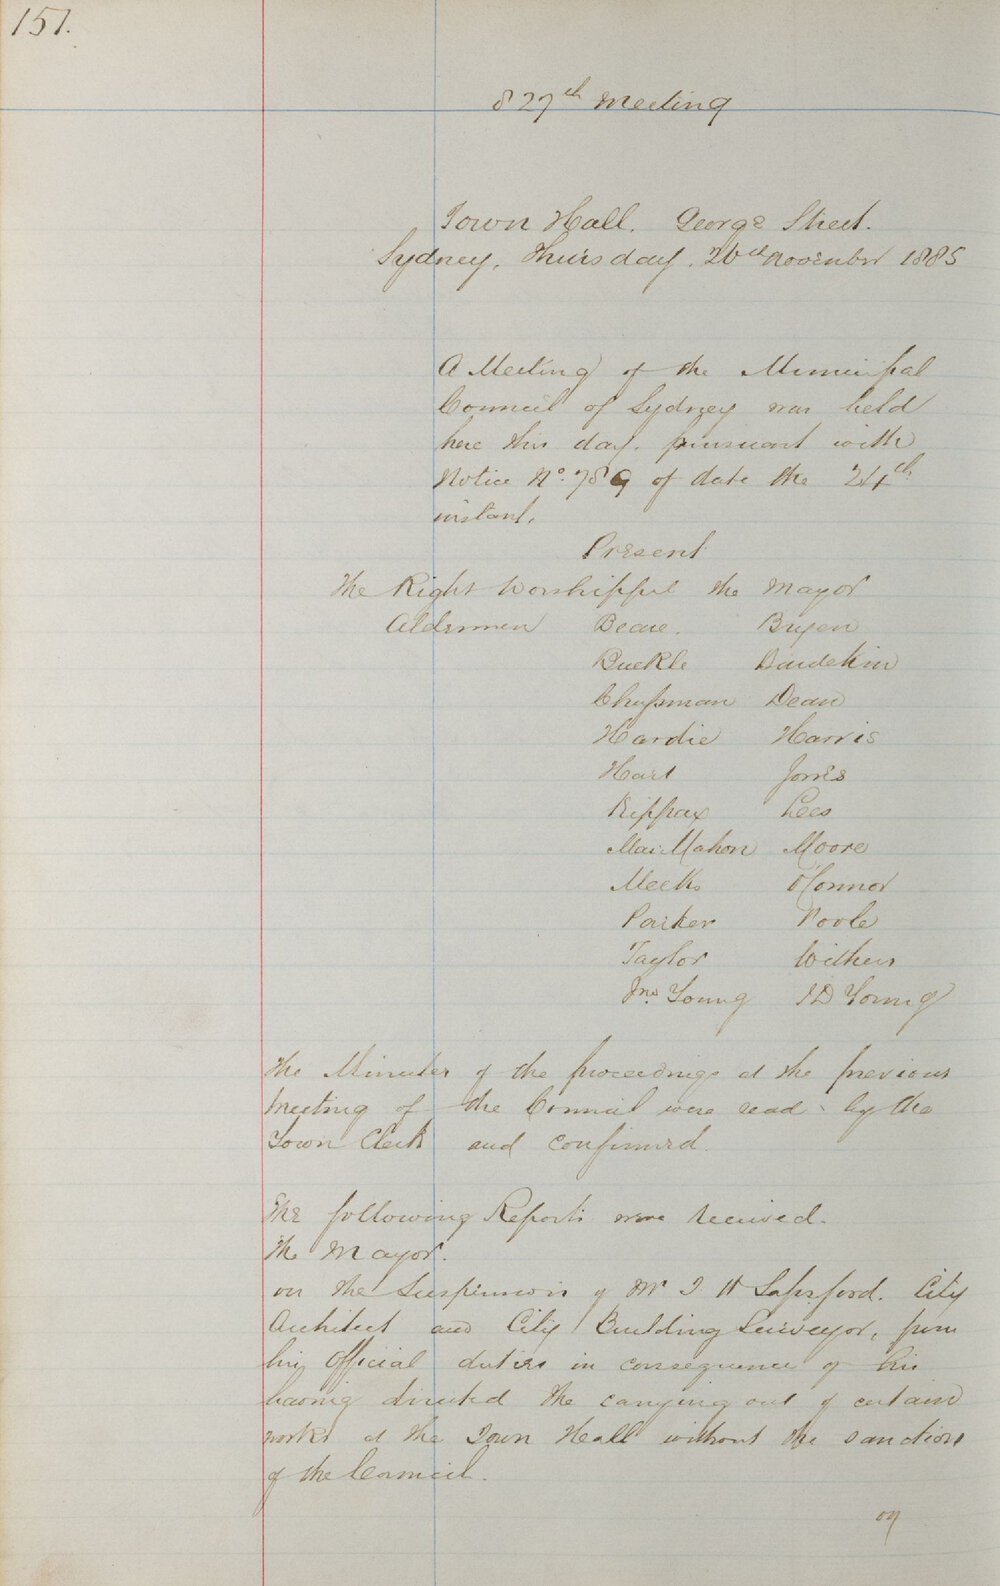 151.
827th Meeting
Town Hall. George Street.
Sydney, Thursday, 26th November 1885
A Meeting of the Municipal
Council of Sydney was held
here this day, pursuant with
Notice No. 789 of date the 24th
instant.
Present
The Right Worshipful the Mayor
Aldermen Beare. Bryen
Buckle Davidskin
Chapman Dean
Hardie Harris
Hart Jones
Kippax Lees
MacMahon Moore
Meeks O'Connor
Parker Poole
Taylor Withers
Jno. Young J D Young
The Minutes of the proceedings at the previous
Meeting of the Council were read by the
Town Clerk and confirmed.
The following Reports were received.
The Mayor.
on the Suspension of Mr T H Sapsford. City
Architect and City Building Surveyor, from
his Official duties in consequence of his
having directed the carrying out of certain
works at the Town Hall without the sanction
of the Council.
on